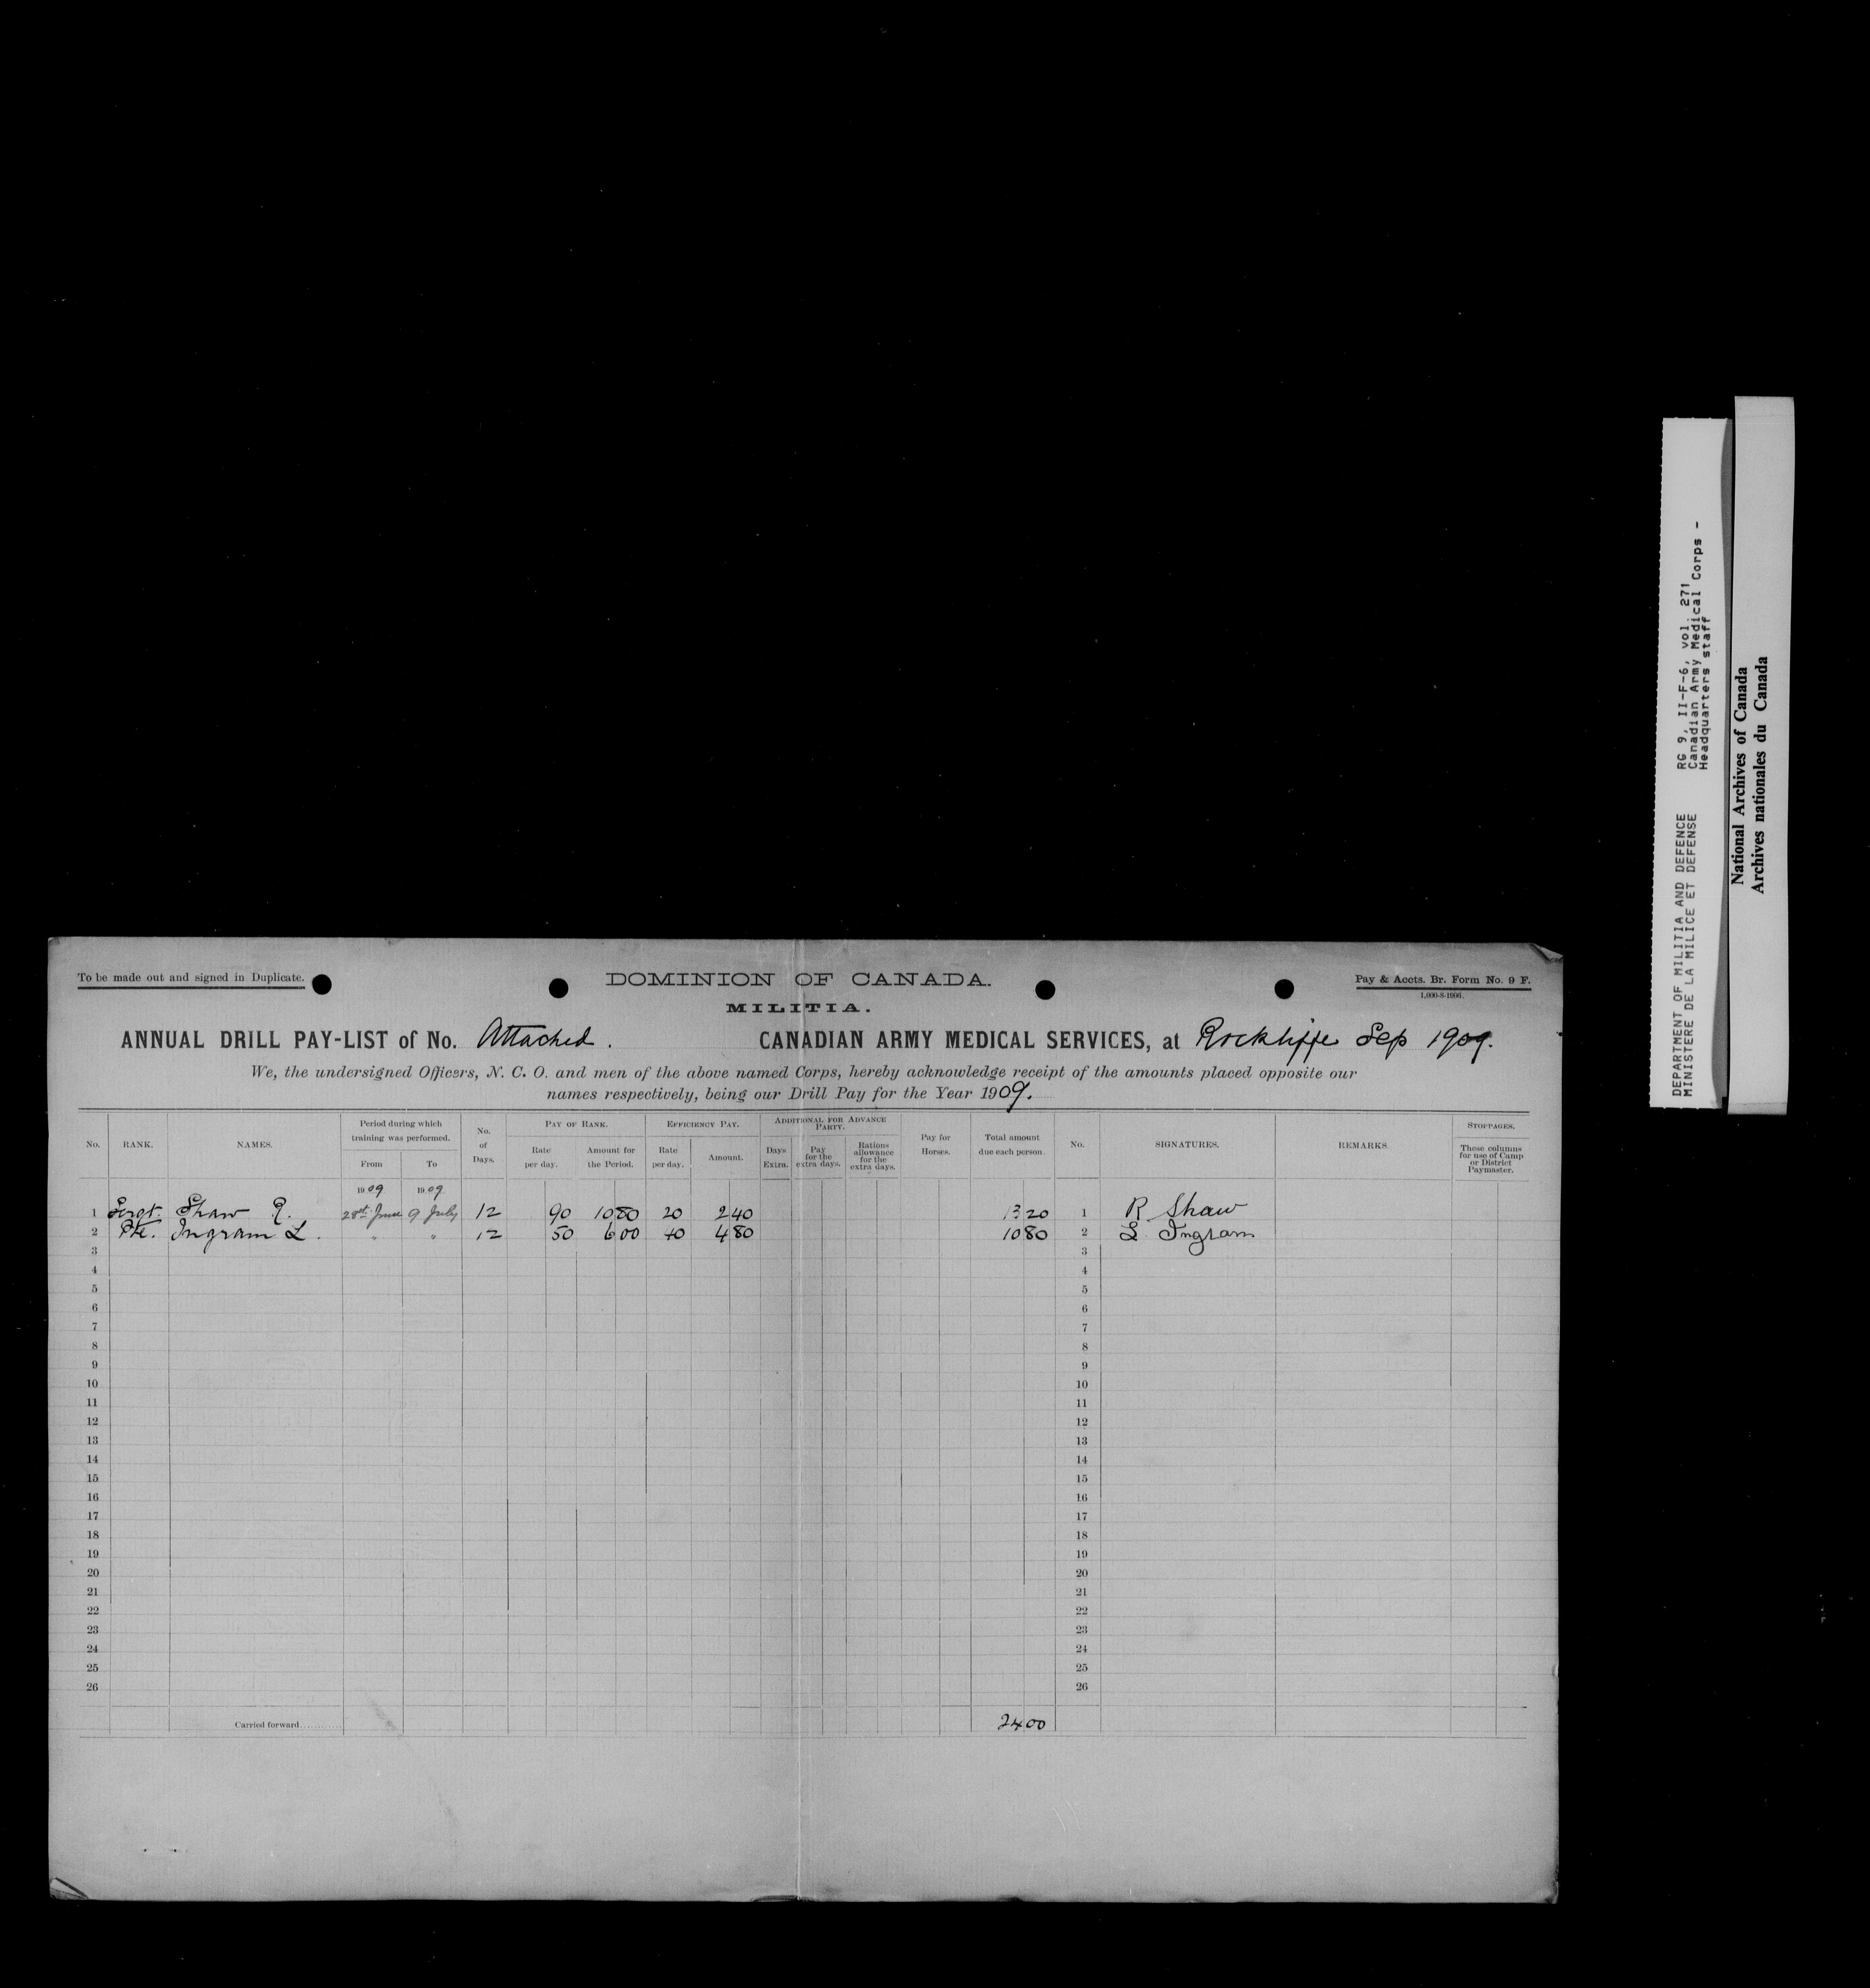 To be made out and signed in Duplicate.
DOMINION OF CANADA.
Pay & Accts. Br. Form No. 9 F.
1,000-8-1906.
MILITIA.
ANNUAL DRILL PAY-LIST of No. Attached. CANADIAN ARMY MEDICAL SERVICES, at Rockliffe Sep 1909.
We, the undersigned Officers, N. C. O. and men of the above named Corps, hereby acknowledge receipt of the amounts placed opposite our
names respectively, being our Drill Pay for the Year 1909.
No. RANK. NAMES. Period during which training was performed. From To No. of Days. PAY OF RANK. Rate per day. Amount for the Period. EFFICIENCY PAY. Rate per day. Amount. ADDITIONAL FOR ADVANCE PARTY. Days Extra. Pay for the extra days. Rations allowance for the extra days. Pay for Horses. Total amount due each person. No. SIGNATURES. REMARKS. STOPPAGES. These columns for use of Camp or District Paymaster.
1909 1909
1 Sergt. Shaw R. 28th June 9 July 12 90 10 80 20 2 40 13 20 1 R Shaw
2 Pte. Ingram L. " " 12 50 6 00 40 4 80 10 80 2 L Ingram
3 3
4 4
5 5
6 6
7 7
8 8
9 9
10 10
11 11
12 12
13 13
14 14
15 15
16 16
17 17
18 18
19 19
20 20
21 21
22 22
23 23
24 24
25 25
26 26
Carried forward............ 24 00
DEPARTMENT OF MILITIA AND DEFENCE RG 9, II-F-6, vol. 271
MINISTERE DE LA MILICE ET DEFENSE Canadian Army Medical Corps -
Headquarters staff
National Archives of Canada
Archives nationales du Canada